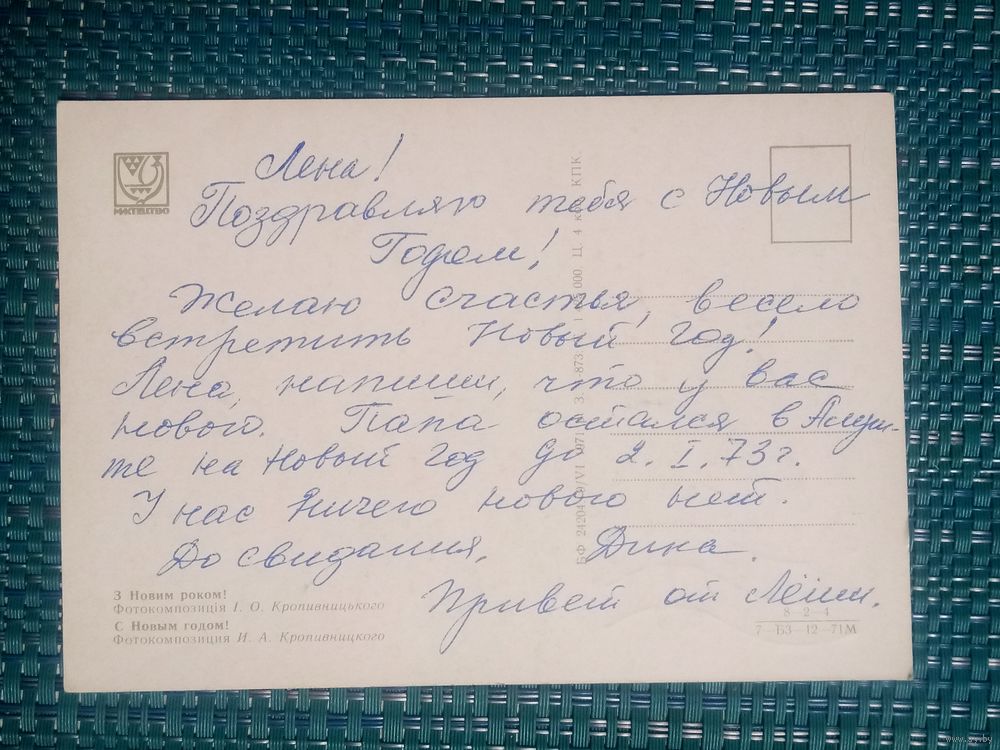 МИСТЕЦТВО
Лена!
Поздравляю тебя с Новым
Годом!
Желаю счастья, весело
встретить Новый год!
Лена, напиши, что у вас
нового. Папа остался в Алуш-
те на Новый год до 2.I.73г.
У нас ничего нового нет.
До свидания, Дина.
Привет от Лёши.
З Новим роком!
Фотокомпозиція І. О. Кропивницького
С Новым годом!
Фотокомпозиция И. А. Кропивницкого
000 Ц. 4 КПК.
8—2—4
7—БЗ—12—71М
www.ay.by